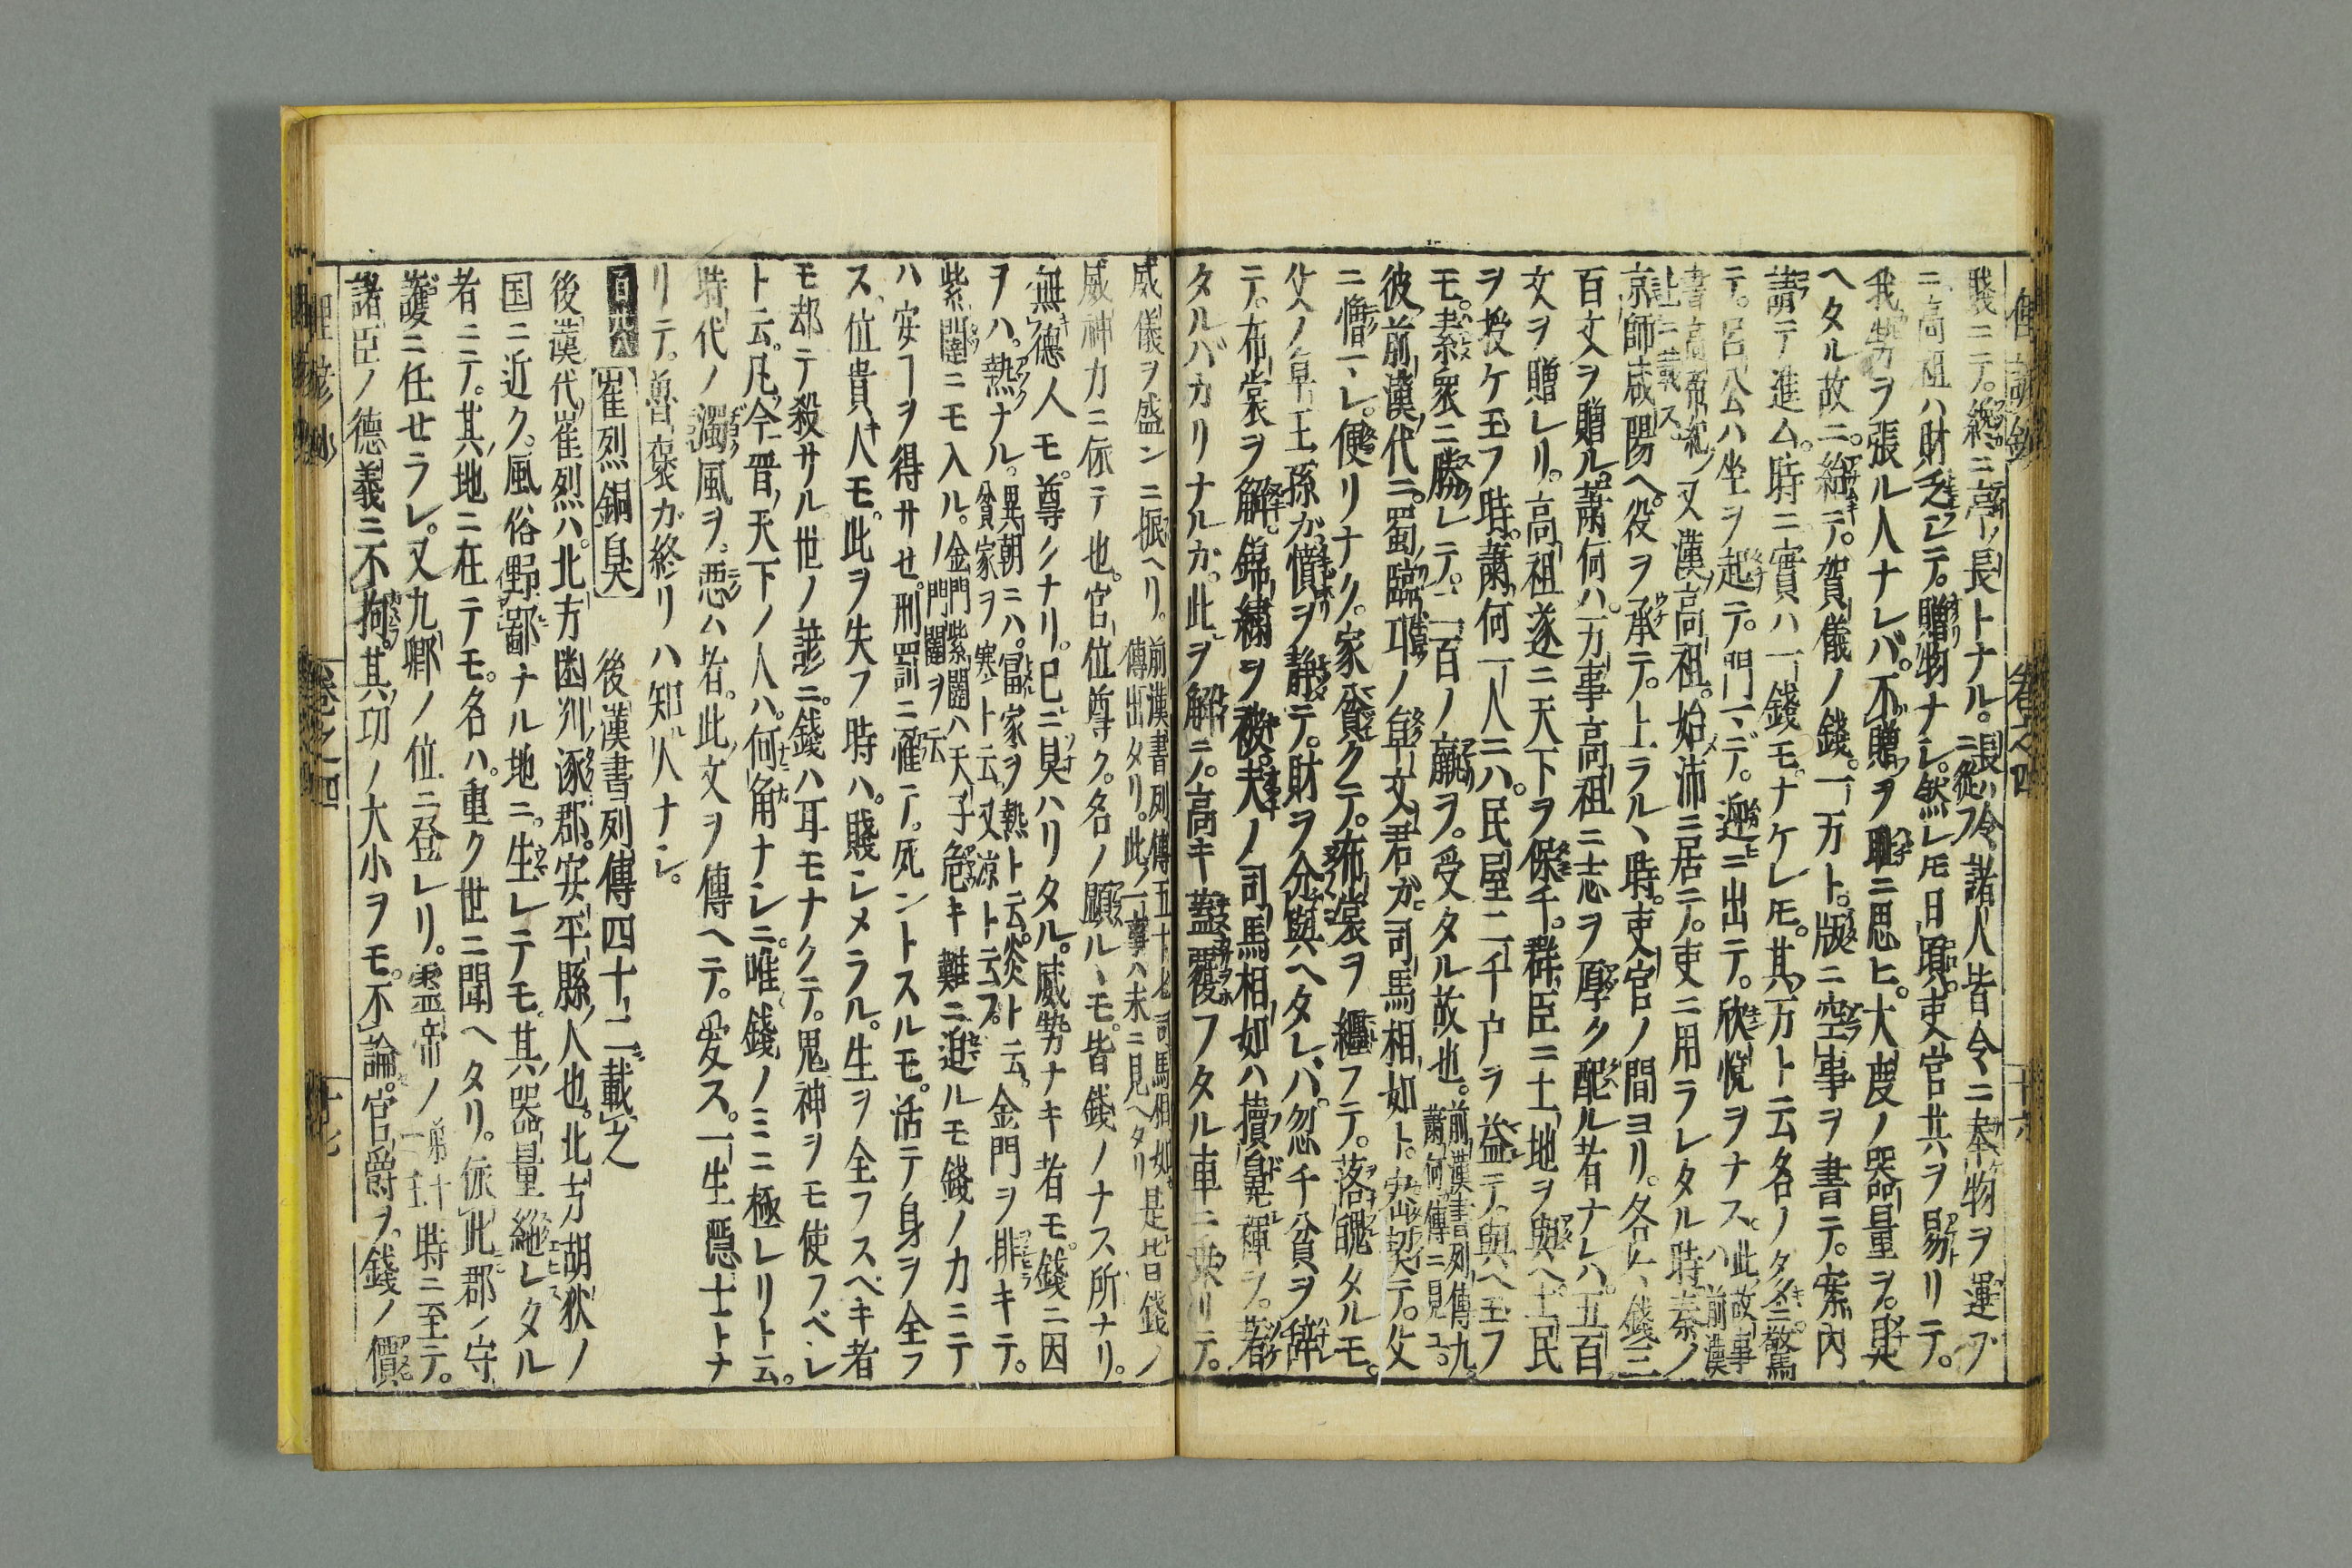 俚諺鈔 卷之四 十六
賤ニテ。纔ニ亭ノ長トナル。長ハ令ニ從フ諸人皆令ニ奉物ヲ運ブ
ニ高祖ハ財乏シテ。贈物ナシ。然レモ日頃。吏官共ヲ易リテ。
我勢ヲ張ル人ナレバ。不贈ヲ耻ニ思ヒ。大度ノ器量ヲ。具
ヘタル故ニ。紿テ。賀儀ノ錢。一万ト。版ニ空事ヲ書テ。案内
請テ進ム。時ニ實ハ一錢モナケレモ。其万ト云名ノ多ニ驚
テ。呂公ハ坐ヲ起テ。門マデ。迎ニ出テ。欣悅ヲナス 此故事ハ前漢
書高帝紀ノ上ニ載ス。又漢高祖。始メ沛ニ居テ。吏ニ用ラレタル時秦ノ
京師咸陽ヘ。役ヲ承テ。上ラルヽ時。吏官ノ間ヨリ。各々錢三
百文ヲ贈ル。蕭何ハ。万事高祖ニ志ヲ厚ク配ル者ナレハ。五百
文ヲ贈レリ。高祖遂ニ天下ヲ保チ。群臣ニ土地ヲ與ヘ土民
ヲ授ケ玉フ時。蕭何一人ニハ。民屋二千户ヲ益テ。與ヘ玉フ
モ。素衆ニ勝レテ。二百ノ贏ヲ。受タル故也。前漢書列傳九。蕭何傳ニ見ユ。
彼前漢代ニ。蜀臨邛ノ卓文君ガ。司馬相如ト。密契テ。父
ニ憎マレ。便リナク。家貧クテ。布裳ヲ纒フテ。落魄タルモ。
父ノ卓王孫ガ。憤ヲ靜テ。財ヲ分與ヘタレハ。忽チ貧ヲ辭
テ。布裳ヲ解。錦繡ヲ被。夫ノ司馬相如ハ犢鼻褌ヲ。著
タルバカリナルガ。此ヲ解テ。高キ蓋覆フタル車ニ乘リテ。
威儀ヲ盛ンニ振ヘリ。前漢書列傳五十七司馬相如傳出タリ。此一事ハ末ニ見ヘタリ 是皆錢ノ
威神力ニ依テ也。官位尊ク。名ノ顯ルヽモ。皆錢ノナス所ナリ。
無德人モ。尊クナリ。已ニ具ハリタル。威勢ナキ者モ。錢ニ因
ヲハ。熱ナル。異朝ニハ。富家ヲ熱ト云。炎ト云。貧家ヲ寒ト云。又凉ト云フ。金門ヲ排キテ。
紫闥ニモ入ル。金門紫闥ハ天子ノ門闥ヲ云 危キ難ニ迫ルモ錢ノ力ニテ
ハ安フヲ得サセ。刑罰ニ罹テ。死ントスルモ。活テ身ヲ全フ
ス。位貴人モ。此ヲ失フ時ハ。賤シメラル。生ヲ全フスベキ者
モ却テ殺サル世ノ諺ニ。錢ハ耳モナクテ。鬼神ヲモ使フベシ
ト云。凡今晋天下ノ人ハ。何角ナシニ。唯錢ノミニ極レリト云。
時代ノ濁風ヲ。惡ハ者。此文ヲ傳ヘテ。愛ス。一生隱士トナ
リテ。魯褒ガ終リハ知ル人ナシ。
崔烈銅臭 後漢書列傳四十二載之
後漢代崔烈ハ。北方幽州涿郡。安平縣人也。北方胡狄ノ
国ニ近ク。風俗野鄙ナル地ニ。生レテモ。其器量絶レタル
者ニテ。其地ニ在テモ。名ハ。重ク世ニ聞ヘタリ。依此郡ノ守
護ニ任セラレ。又九卿ノ位ニ登レリ。靈帝ノ 第十一主 時ニ至テ。
諸臣ノ德義ニ不拘。其功ノ大小ヲモ。不論。官爵ヲ。錢ノ價
俚諺鈔 卷之四 十七